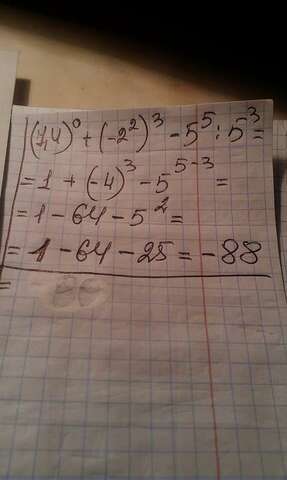 (7,4)⁰ + (-2²)³ - 5⁵ : 5³ =
= 1 + (-4)³ - 5⁵⁻³ =
= 1 - 64 - 5² =
= 1 - 64 - 25 = - 88
=